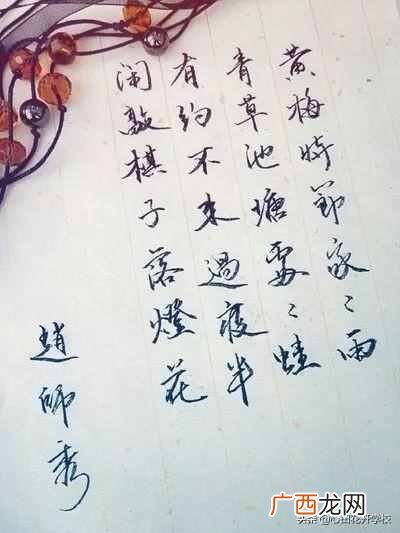 黄梅時節家〻雨
青草池塘處〻蛙
有約不来過夜半
闲敲棋子落燈花
趙師秀
广西龙网
头条 @心田花开学校